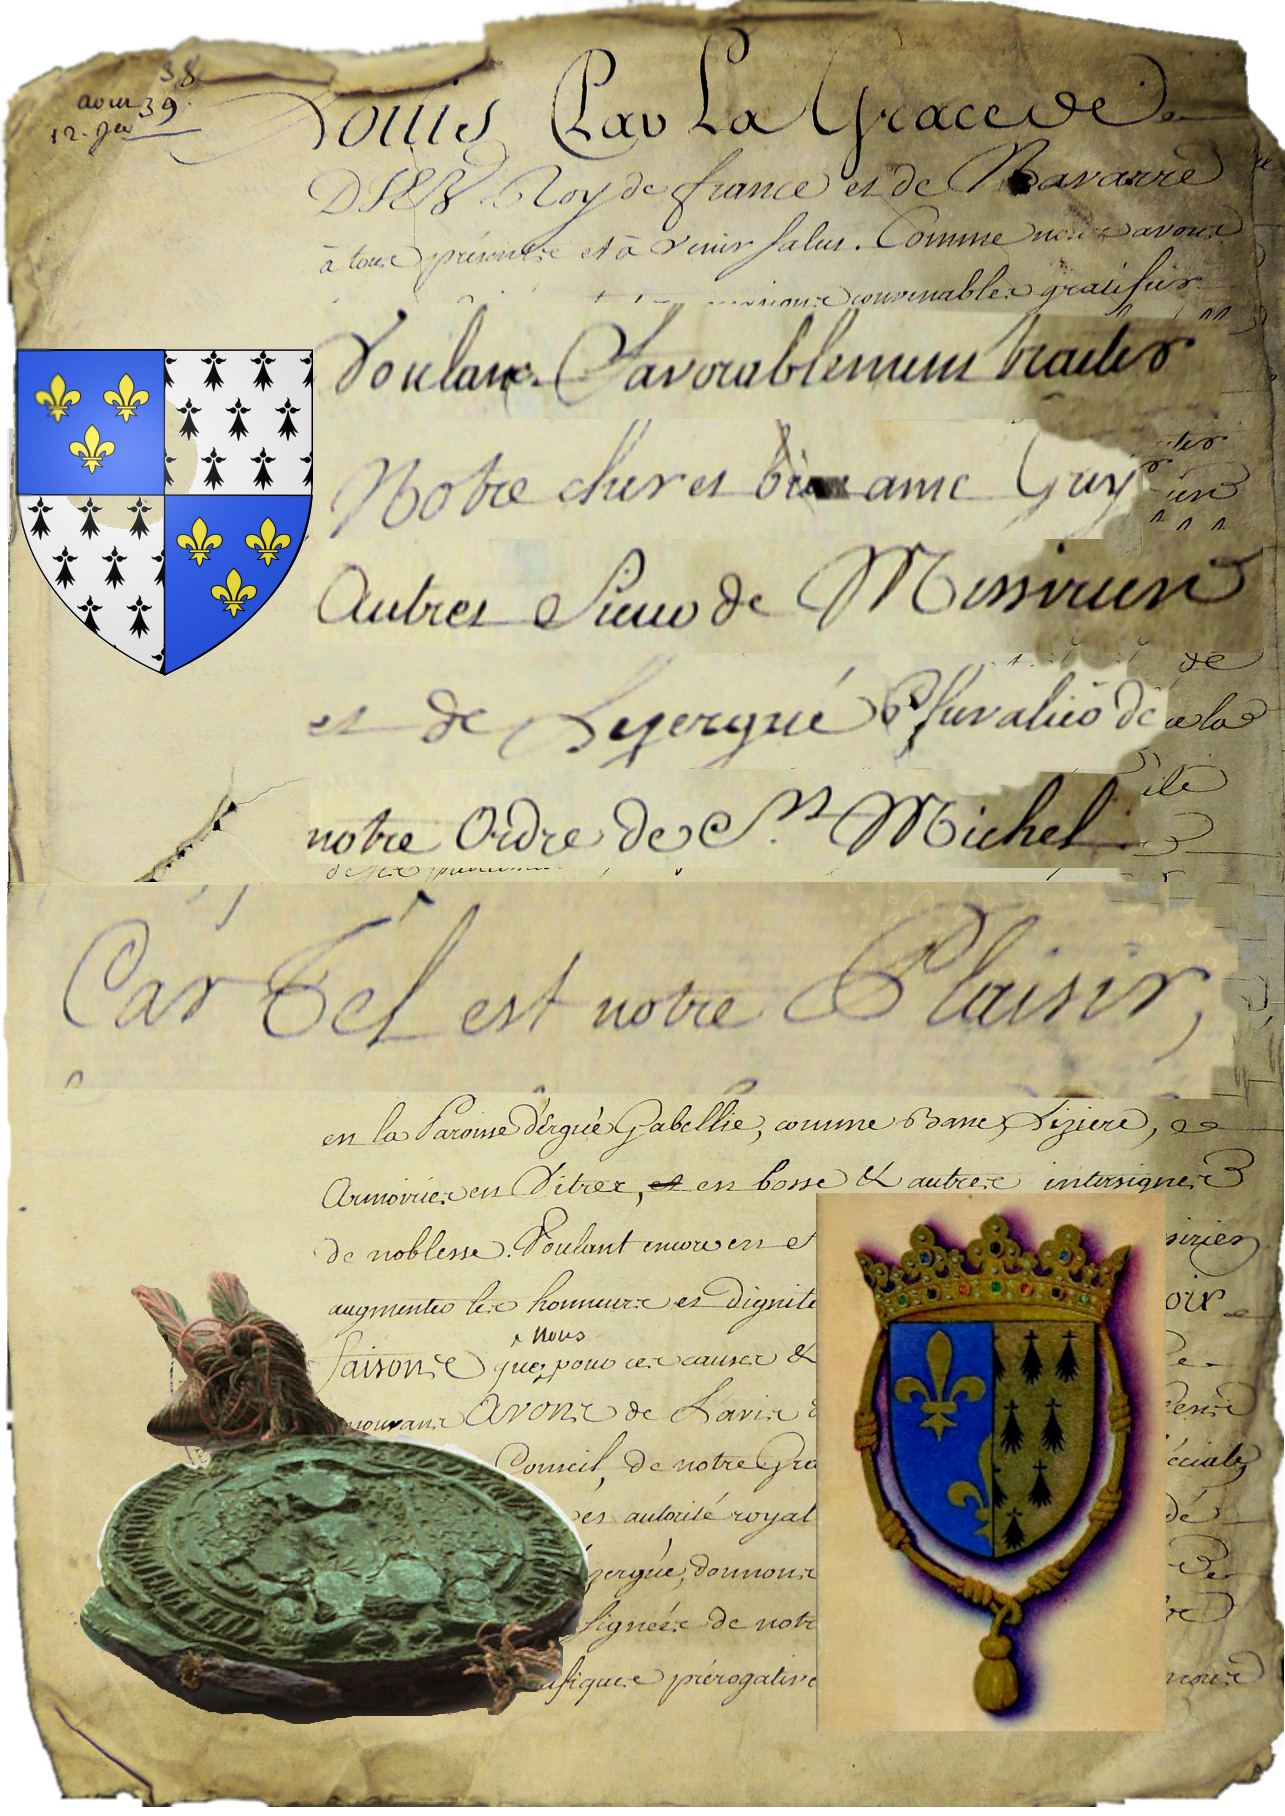 38
aoust 39.
12. Jer
Louis Par La Grace de
DIEU Roy de france et de Navarre
à tous présents et à venir salut. Comme nous avons
convenables gratifier
Voulant Favorablement traiter
Notre cher et bien amé Guy
Autret Sieur de Missirien
et de Lezergué Chevalier de
notre Ordre de St. Michel
Car Tel est notre Plaisir,
en la Paroisse d'Ergué Gabellic, comme Banc, Liziere, et
Armoiries en Vitres, et en bosse & autres intersignes
de noblesse. Voulant encore en
augmenter les honneurs et dignité
Nous
faisons que, pour ces causes &
mouvans avons de Lavis
Conseil, de notre Gra
et autorité royal
zergué, donnons
signées de notr
prérogative